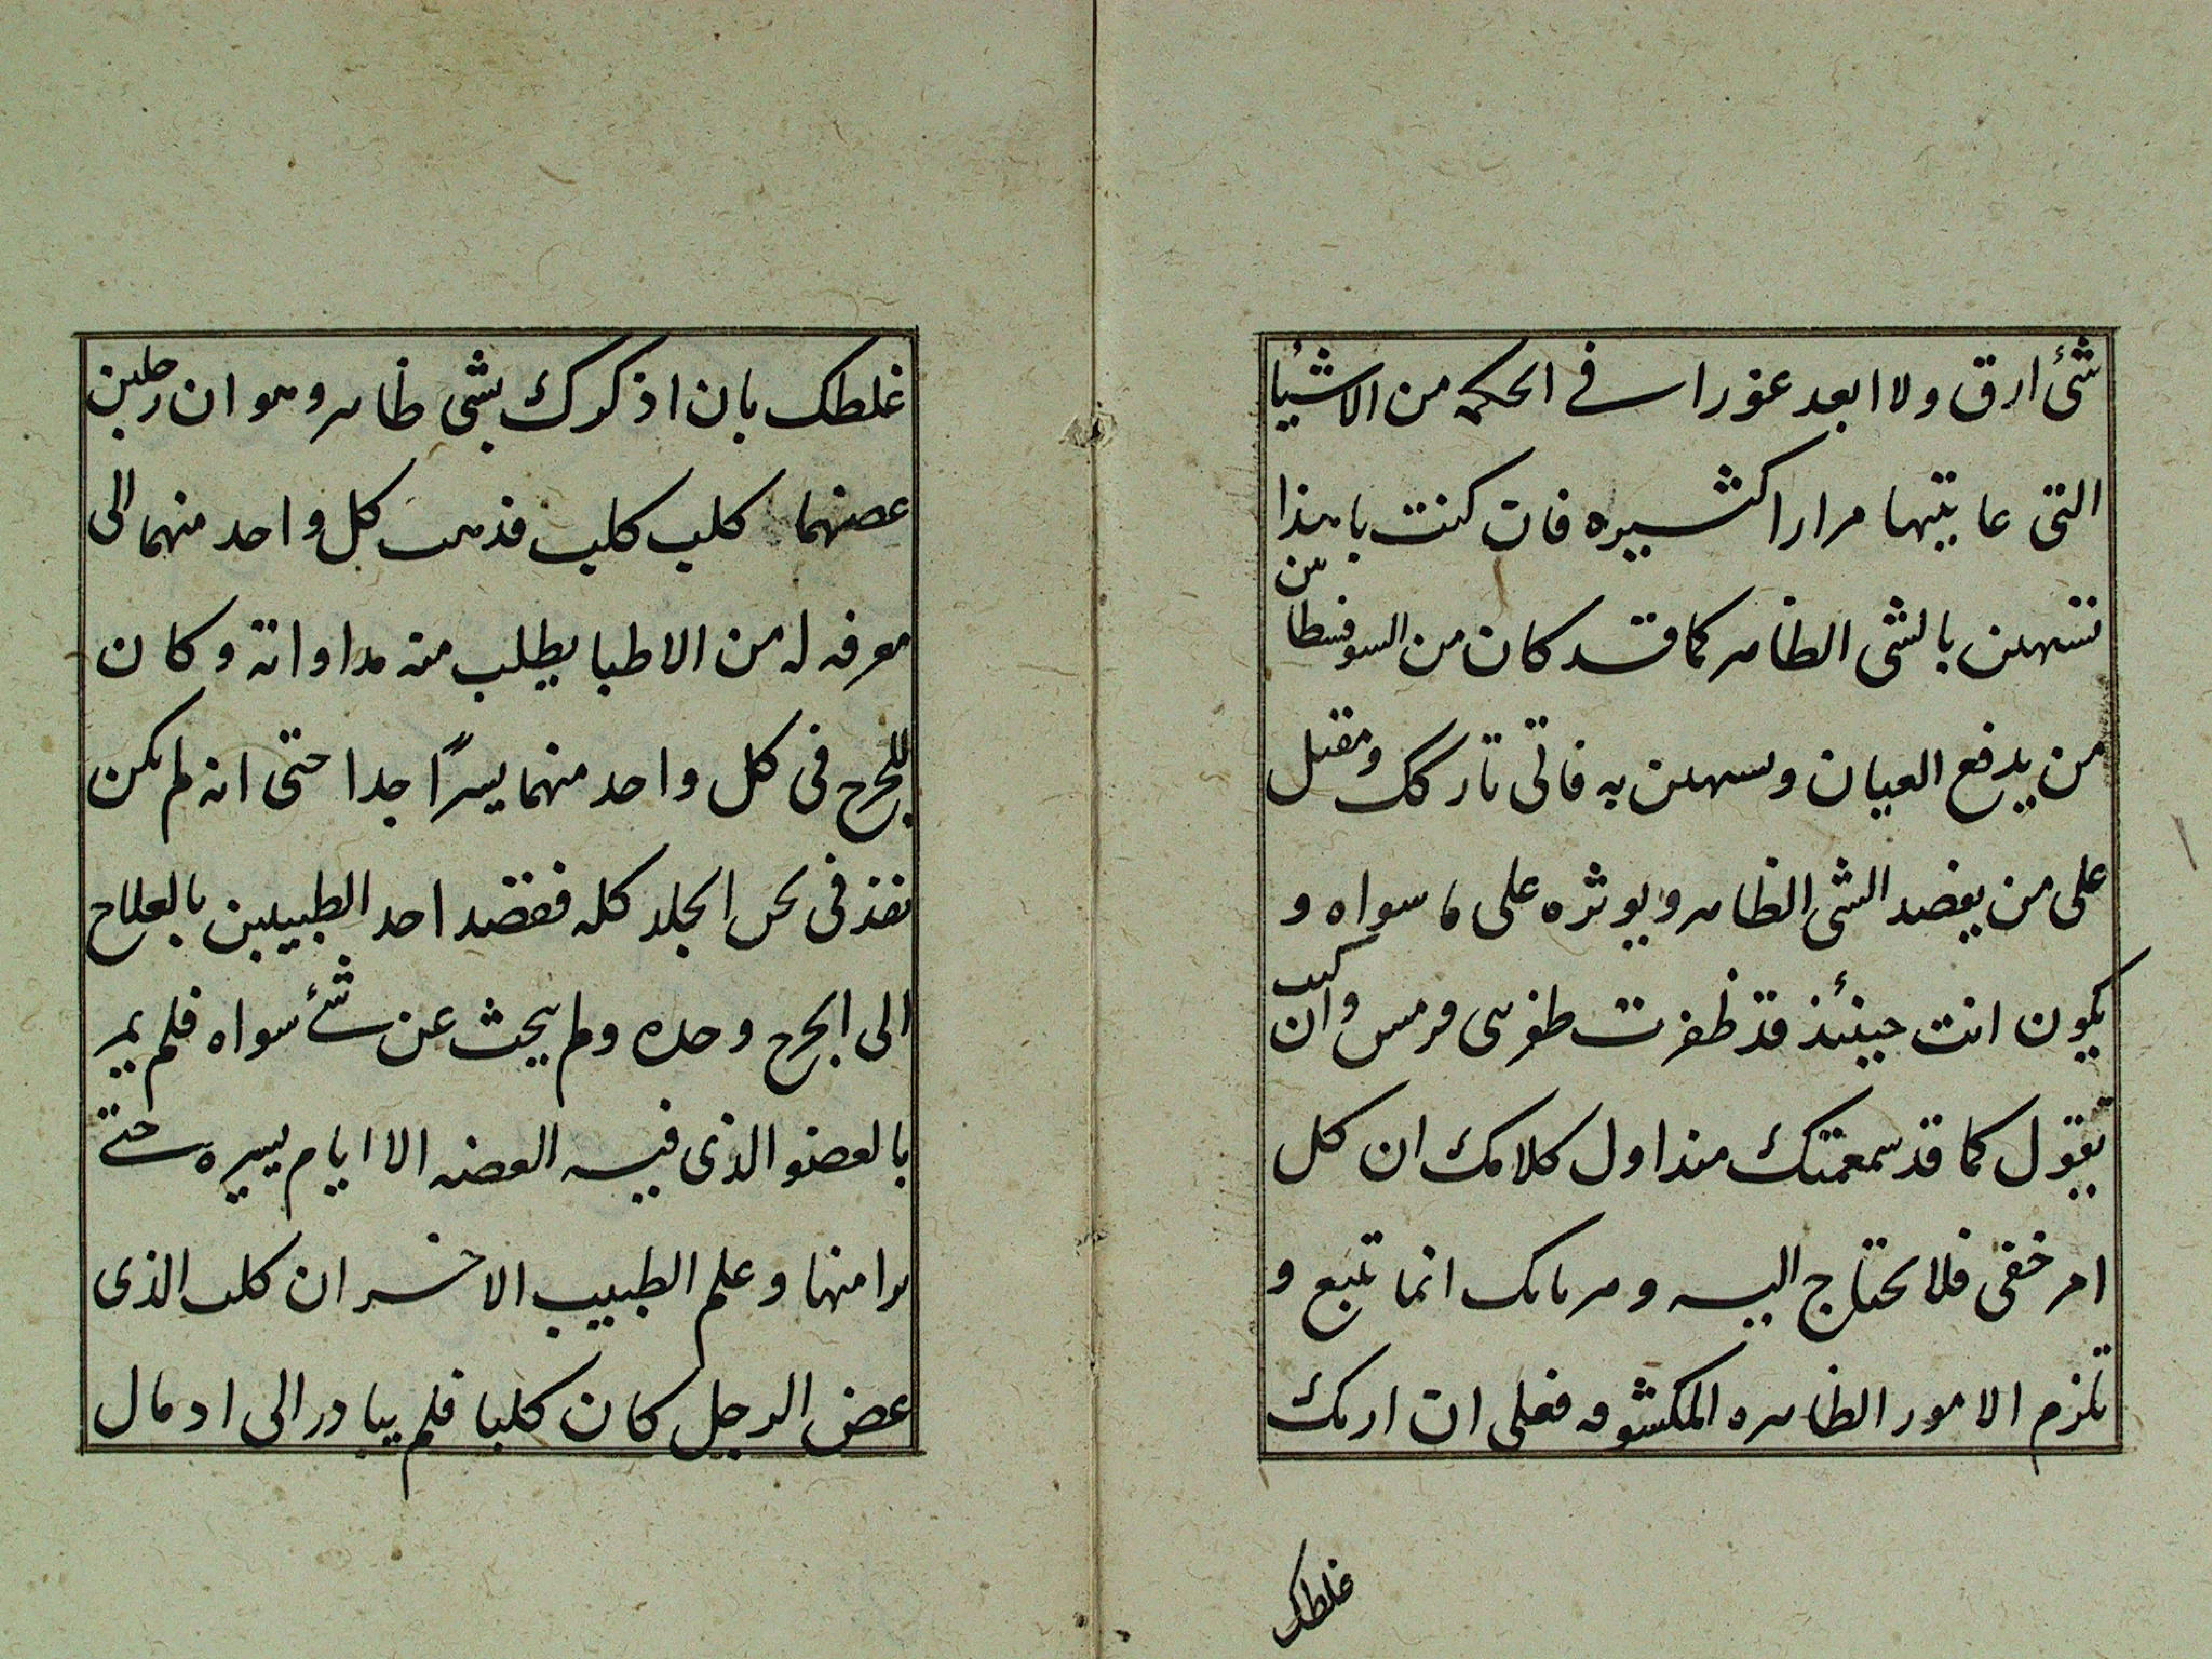 شئ ارق ولا ابعد عورا فى الحكمه من الاشيا
التى عاينتها مرارا كثيره فان كنت يا هذا
تستهين بالشى الظاهر كما قد كان من السوفسطايين
من يدفع العيان وسهىن به فانى تاركك ومقبل
على من يقصد الشى الظاهر ويوثره على ما سواه و
يكون انت حينئذ قد ظفرت طفرسى فرمس وان كىت
تقول كما قد سمعتك منذ اول كلامك ان كل
امر خفى فلا تحتاج اليه وهربك انما تتبع و
تلزم الامور الظاهره المكشوفه فعلى ان اريك
غلطك
غلطك بان اذكرك بشى ظاهر وهو ان رجلين
عضهما كلب كلب فذهب كل واحد منهما الى
معرفه له من الاطبا يطلب منه مداواته وكان
للجرح فى كل واحد منهما يسرًا جدا حتى انه لم يكن
نفذ فى ىحں الجلد كله فقصد احد الطبيبين بالعلاج
الى الجرح وحده ولم يبحث عن شئ سواه فلم يمر
بالعضو الذى فيه العضه الا ايام يسيره حتى
برا منها وعلم الطبيب الاخر ان كلب الذى
عض الرجل كان كلبا فلم يبادر الى ادمال